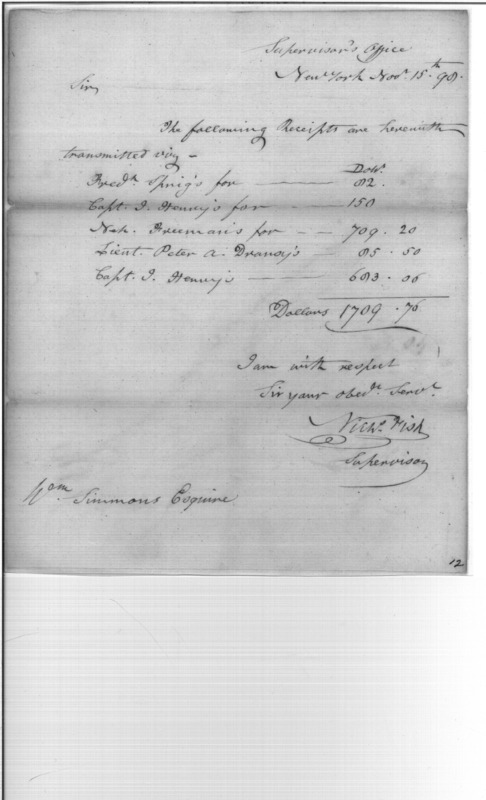 Supervisor's Office
New York Novr. 15th 98.
Sir
The following Receipts are herewith
transmitted viz -
Dolls.
Fredk. for 82.
Capt. J. Henry's for 150
Nat. Freeman's for 709.20
Lieut. Peter A. Dransy's 85.50
Capt. J. Henry's 683.06
Dollars 1709.76
I am with respect
Sir your obedt. Servt.
Nichs. Fish
Supervisor
Wm Simmons Esquire
12